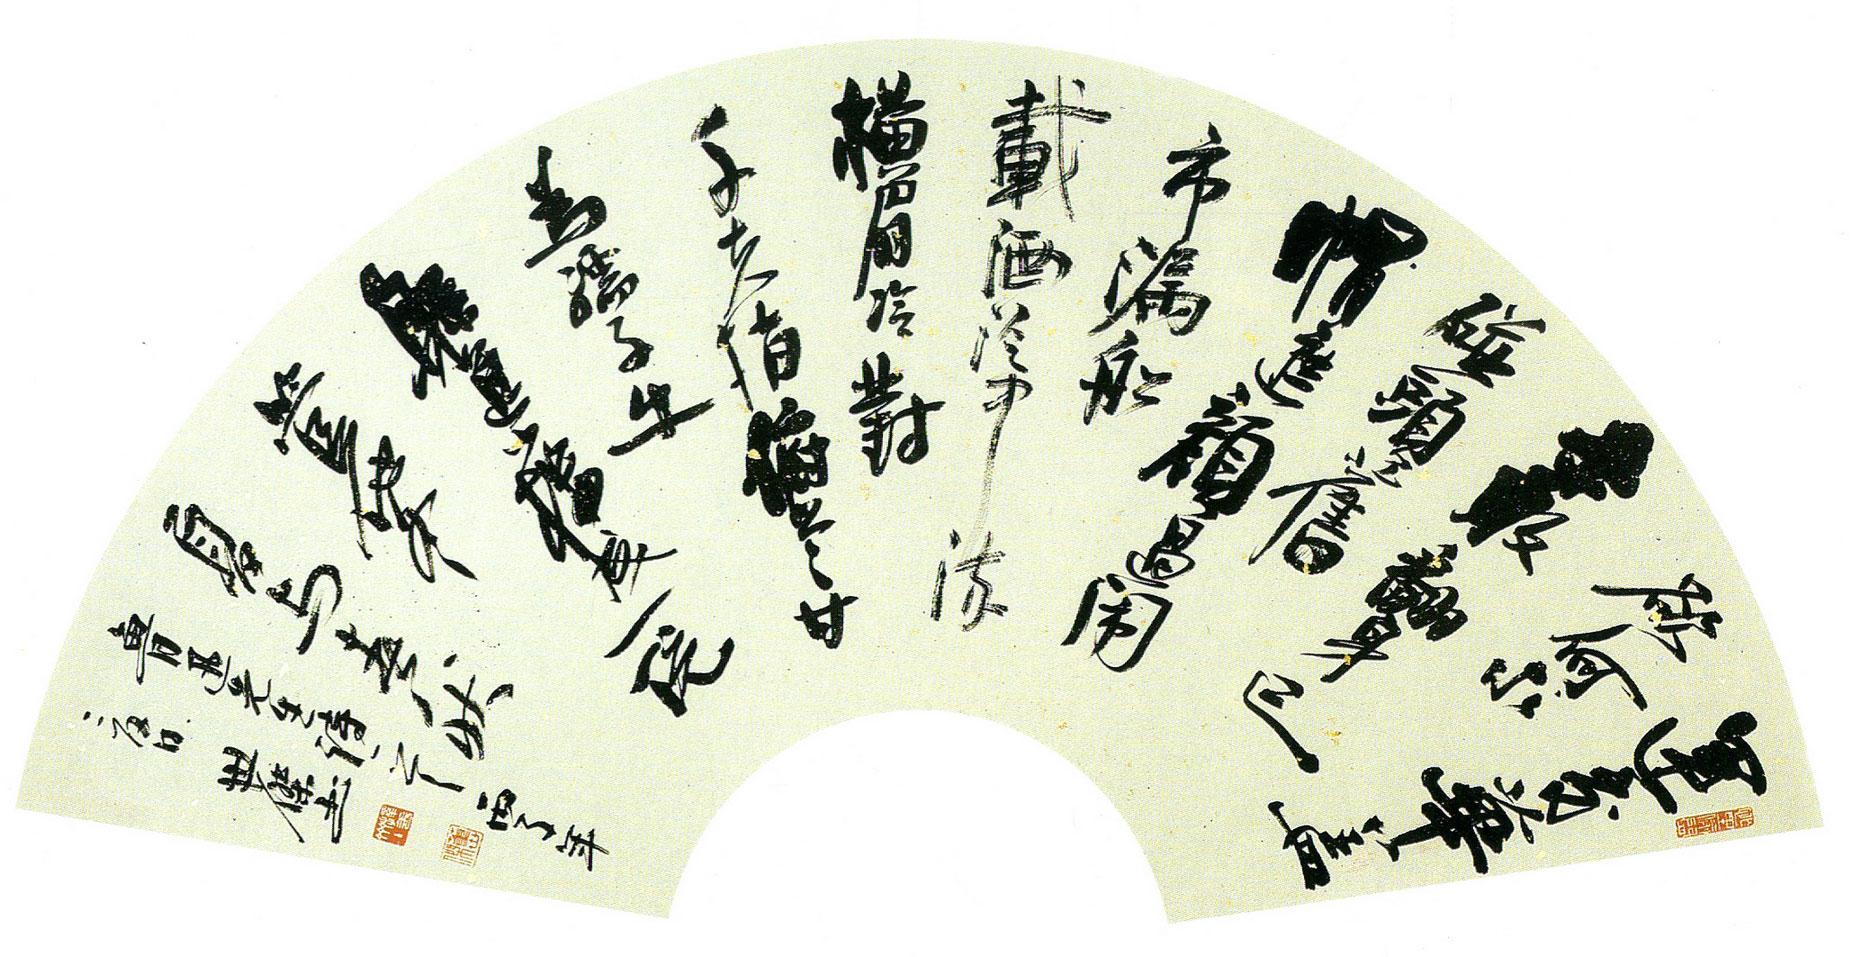 運交華蓋
欲何求
未敢翻身已
碰頭舊
帽遮顏過鬧
市漏船
載酒泛中流
橫眉冷對
千夫指俯首甘
為孺子牛
躲進小樓成一統
管他冬
夏與春秋
魯迅先生詩 丙子年